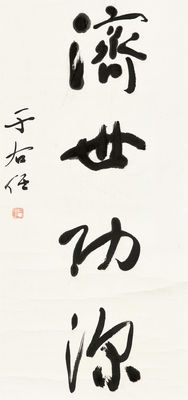 濟世功深
于右任